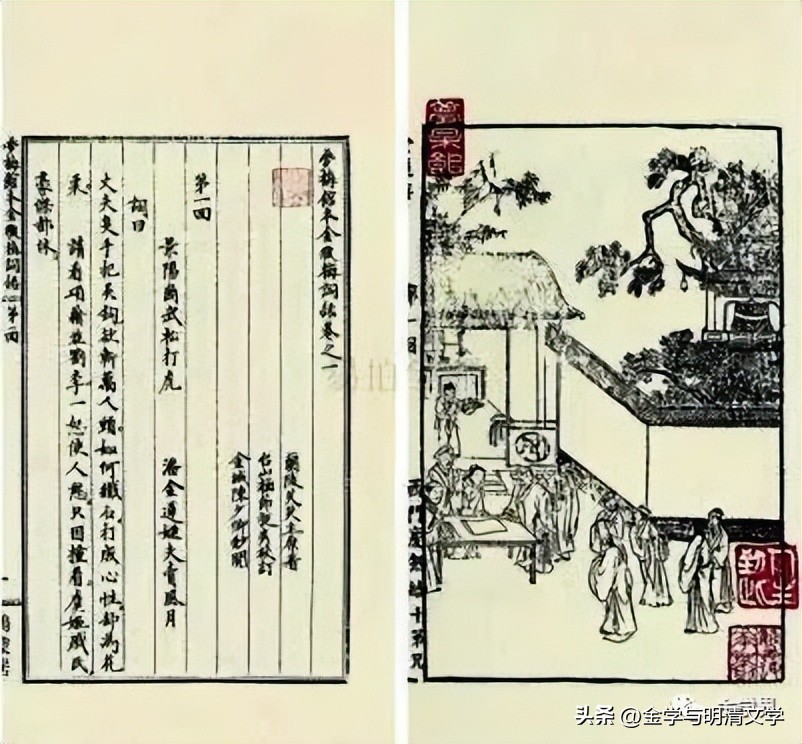 夢梅館本金瓶梅詞話卷之一
蘭陵笑笑生原著
台山梅節重校訂
金城陳少卿鈔閱
第一回
景陽崗武松打虎　潘金蓮嫌夫賣風月
詞曰
丈夫隻手把吳鈎欲斬萬人頭如何鐵石打成心性卻為花
柔　請看項籍並劉季一怒使人愁只因撞着虞姬戚氏
豪傑都休
夢梅館本金瓶梅詞話 第一回
夢梅館
第一回
西門慶熱結十弟兄
头条 @金学与明清文学